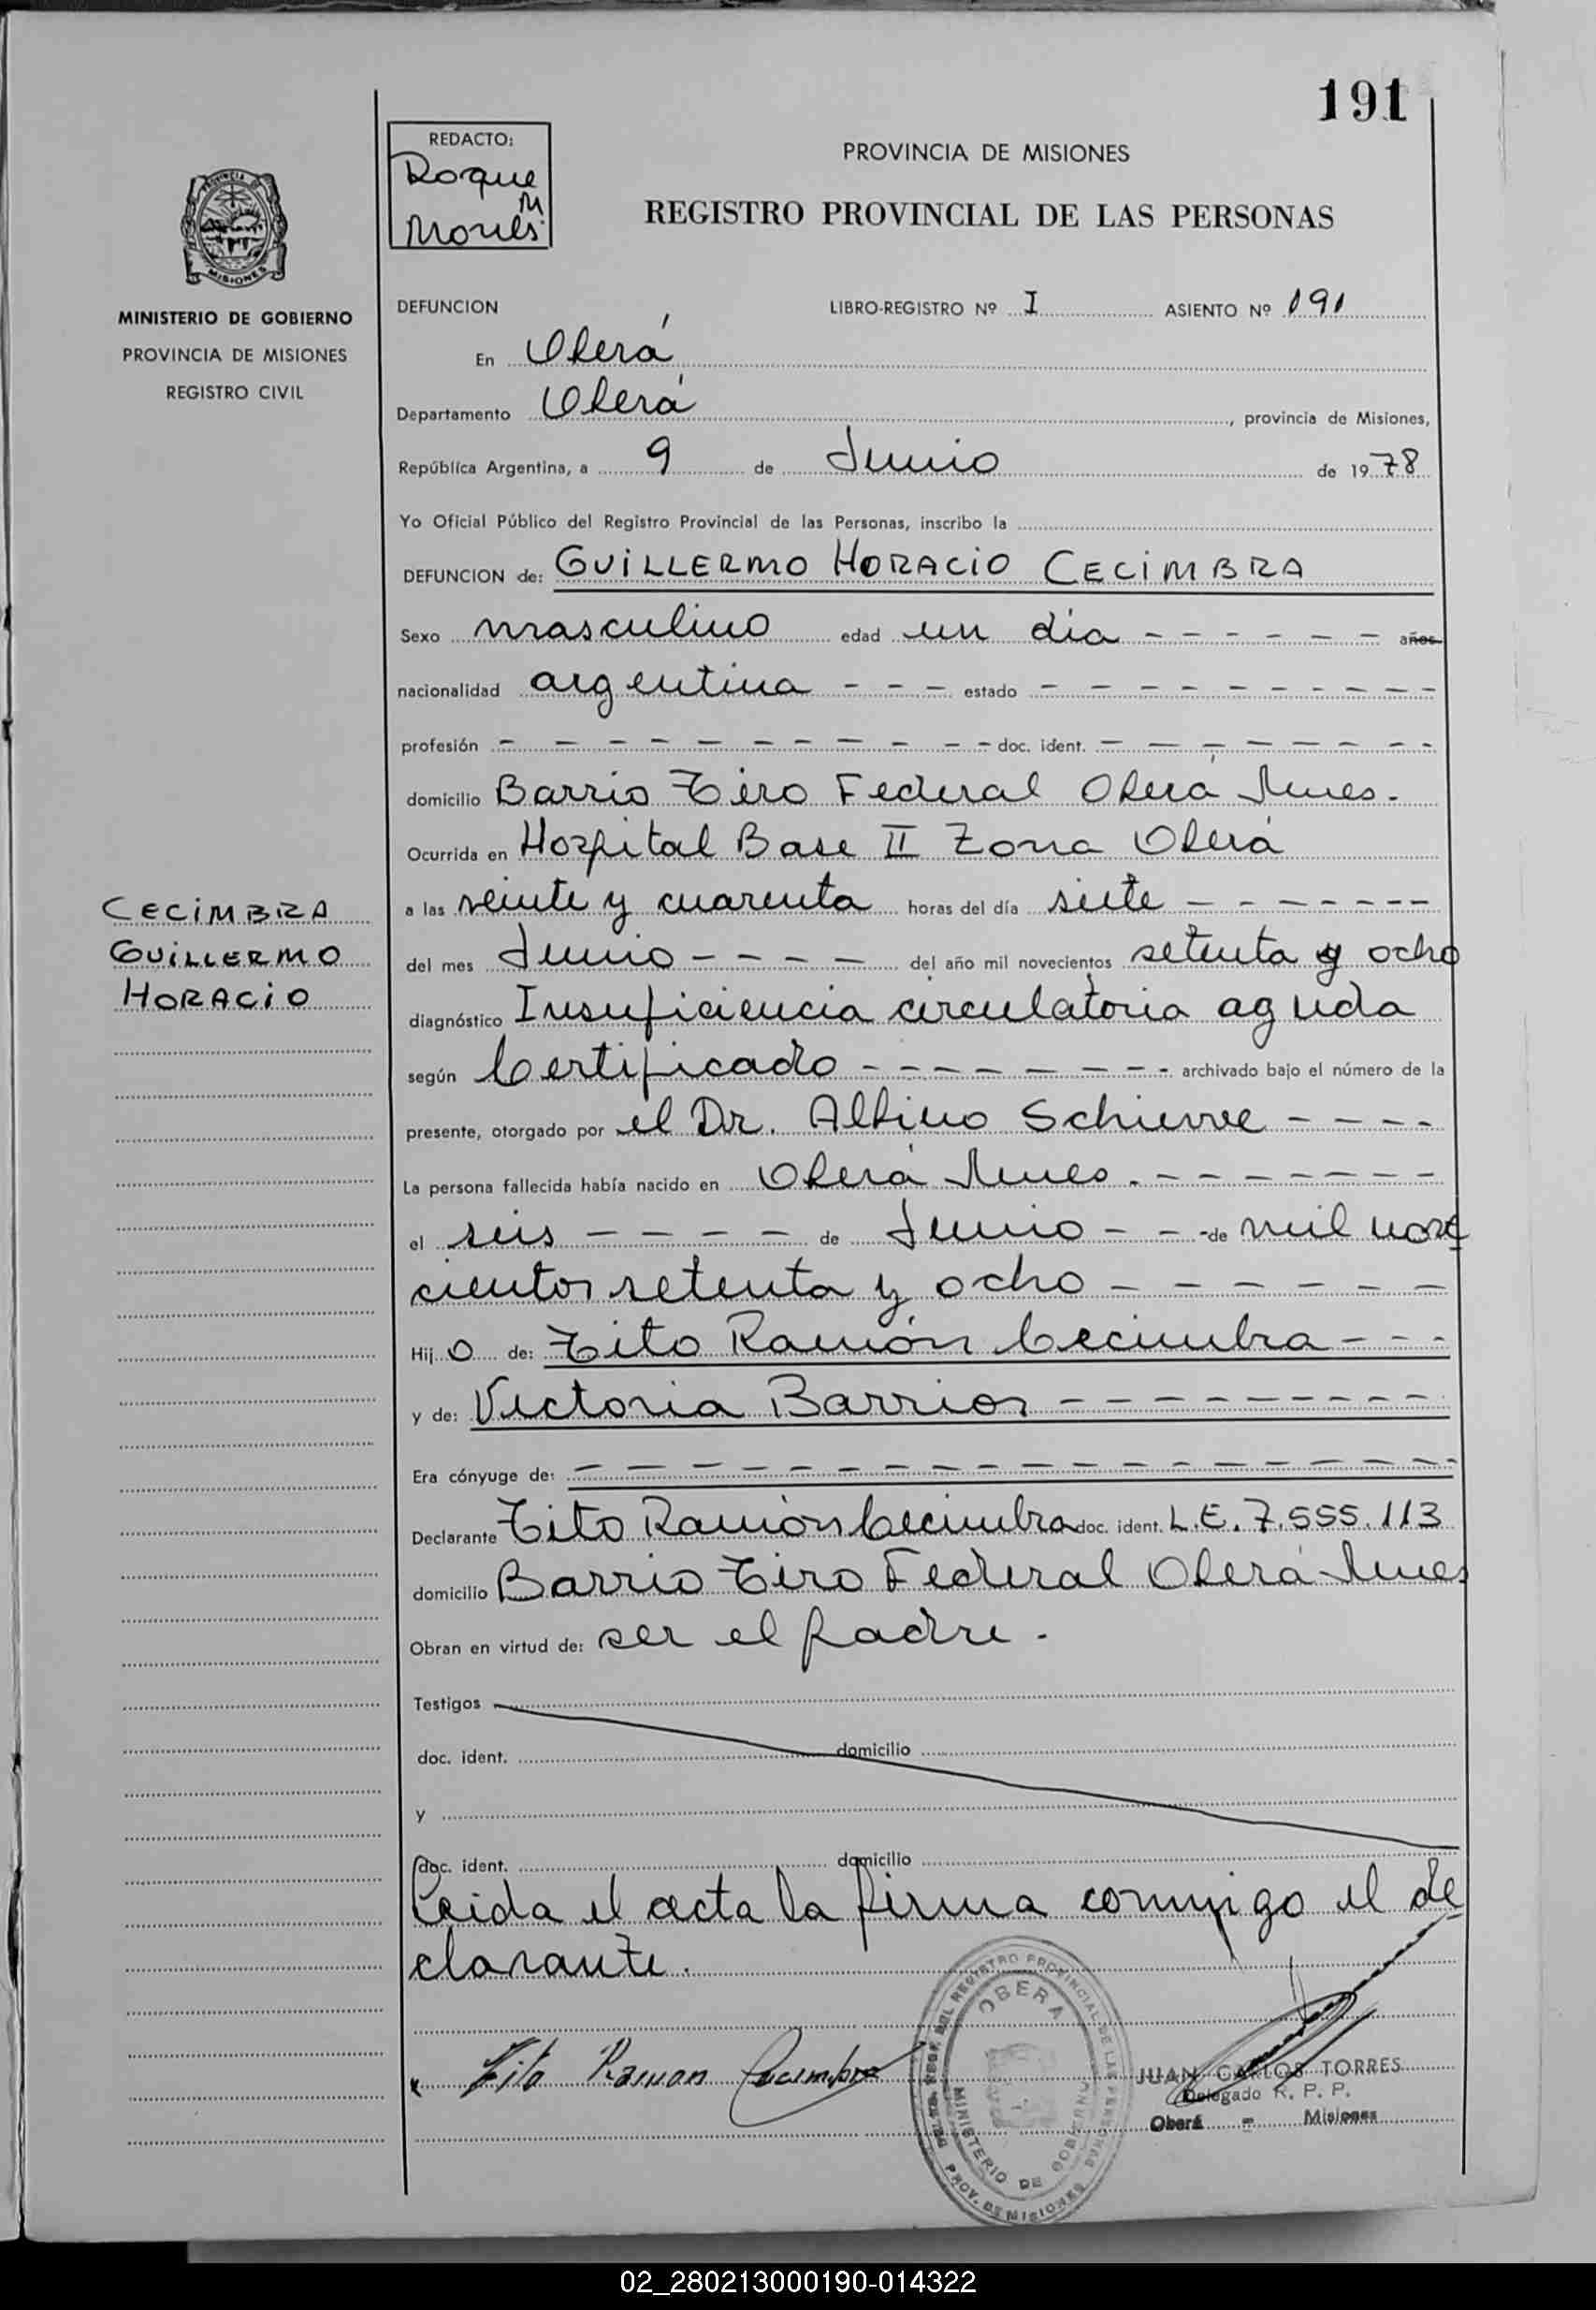 191
REDACTO:
Roque
M
PROVINCIA DE MISIONES
REGISTRO PROVINCIAL DE LAS PERSONAS
PROVINCIA DE
MISIONES
MINISTERIO DE GOBIERNO
PROVINCIA DE MISIONES
REGISTRO CIVIL
DEFUNCION LIBRO-REGISTRO Nº I ASIENTO Nº 191
En Oberá
Departamento Oberá, provincia de Misiones,
República Argentina, a 9 de Junio de 1978
Yo Oficial Público del Registro Provincial de las Personas, inscribo la
DEFUNCION de: GUILLERMO HORACIO CECIMBRA
Sexo masculino edad un día - - - - - - años
nacionalidad argentina - - - estado - - - - - - - - - -
profesión - - - - - - - - - - - doc. ident. - - - - - - - -
domicilio Barrio Tiro Federal Oberá Mnes.
Ocurrida en Hospital Base II Zona Oberá
a las veinte y cuarenta horas del día siete - - - - - - -
del mes Junio - - - - - del año mil novecientos setenta y ocho
diagnóstico Insuficiencia circulatoria aguda
según Certificado - - - - - - - - - archivado bajo el número de la
presente, otorgado por el Dr. Albino - - - -
La persona fallecida había nacido en Oberá Mnes. - - - - - - -
el seis - - - - - de Junio - - - de mil nove
cientos setenta y ocho - - - - - - -
Hijo de: Tito Ramón Cecimbra - - -
y de: Victoria Barrios - - - - - - - - -
Era cónyuge de: - - - - - - - - - - - - - - - - -
Declarante Tito Ramón Cecimbra doc. ident. L.E. 7.555.113
domicilio Barrio Tiro Federal Oberá Mnes
Obran en virtud de: ser el padre.
Testigos
doc. ident. domicilio
y
doc. ident. domicilio
Leida el acta la firma conmigo el de
clarante.
Tito Ramon Cecimbra
CECIMBRA
GUILLERMO
HORACIO
OBERA
MINISTERIO DE GOBIERNO
PROV. DE MISIONES
JUAN CARLOS TORRES
Delegado R. P. P.
Oberá - Misiones
02_280213000190-014322